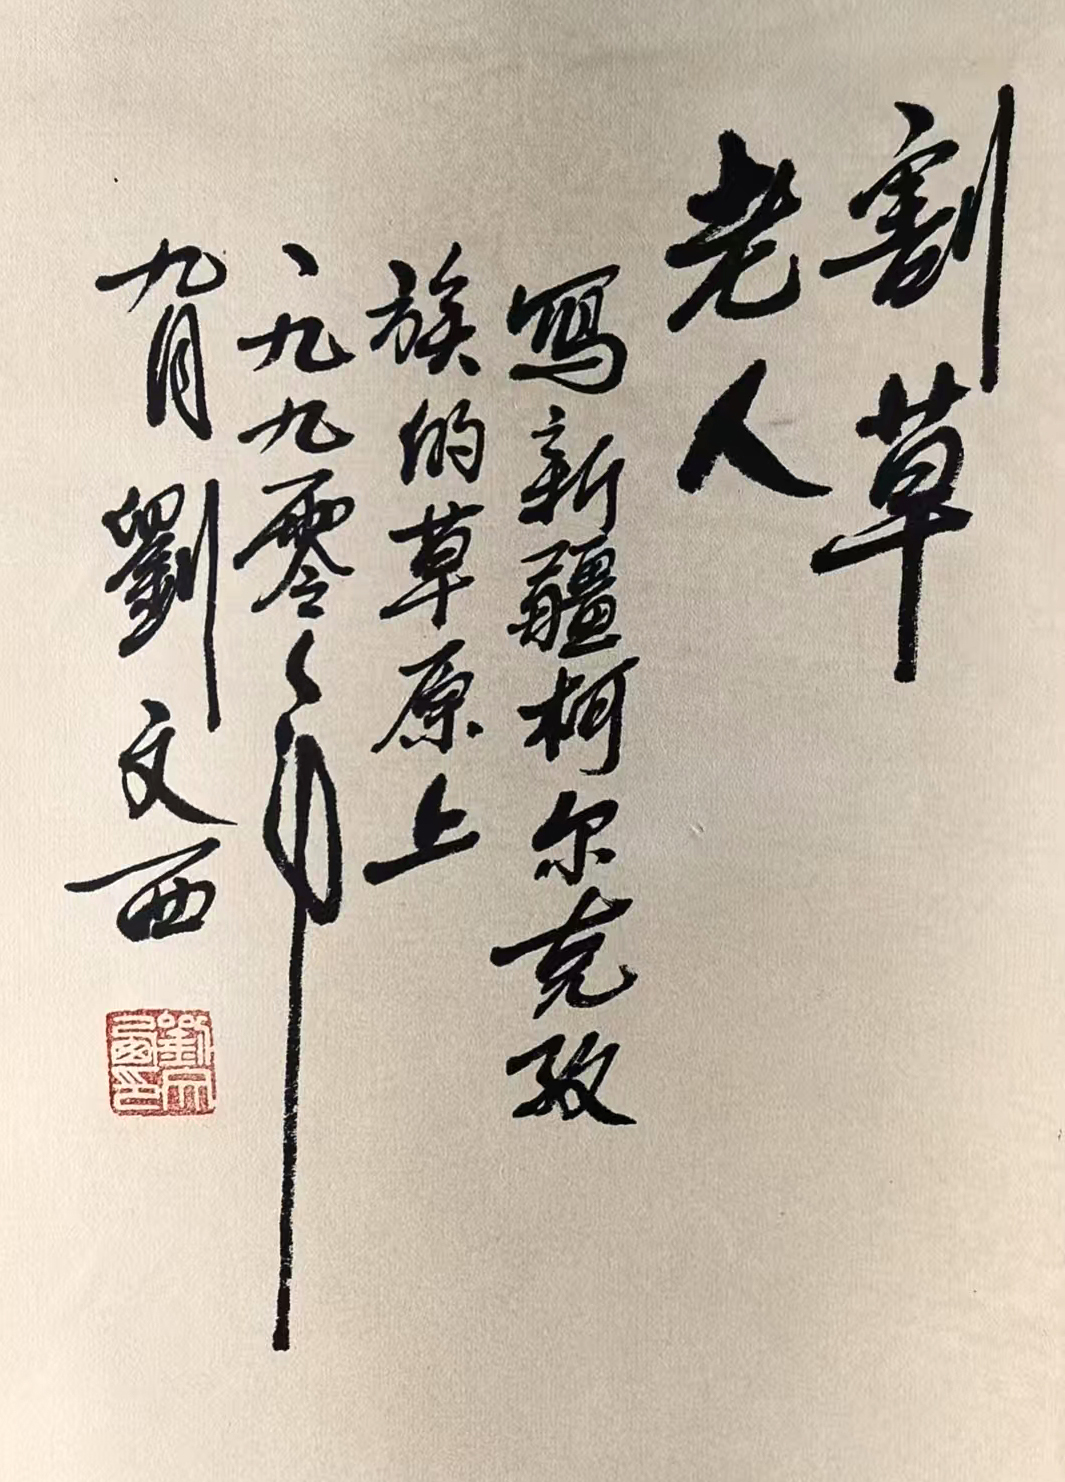 割草
老人
寫新疆柯尔克孜
族的草原上
一九九零年
九月劉文西
劉文西印